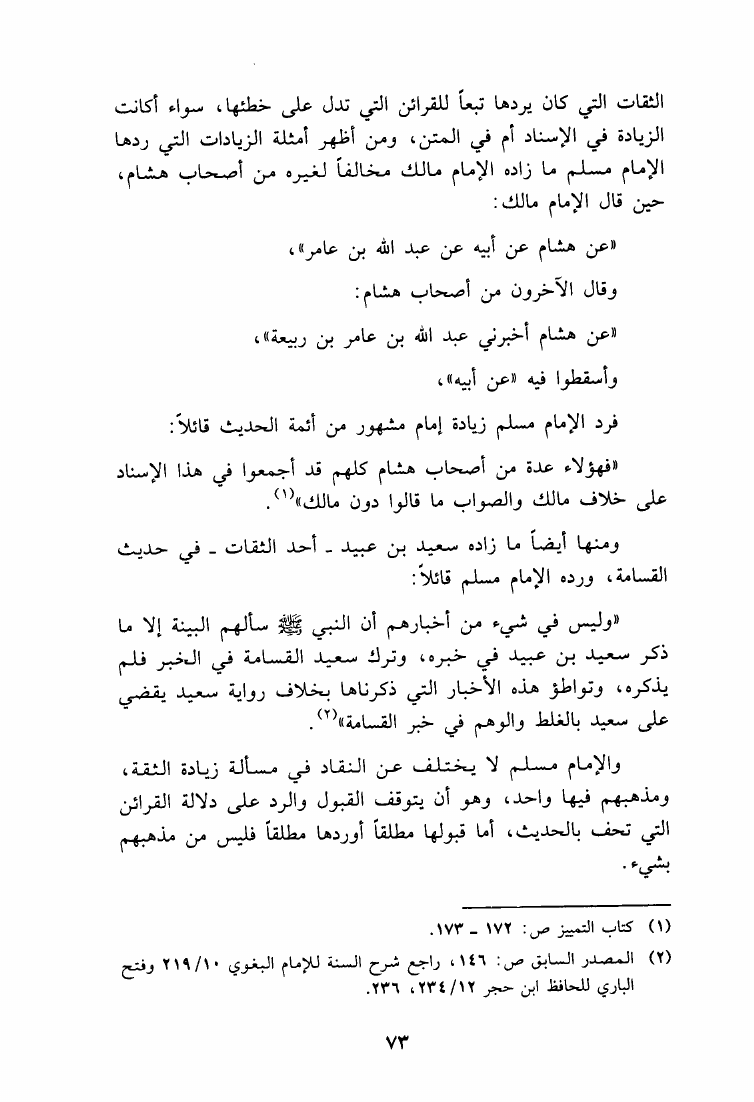 الثقات التي كان يردها تبعاً للقرائن التي تدل على خطئها، سواء أكانت
الزيادة في الإسناد أم في المتن، ومن أظهر أمثلة الزيادات التي ردها
الإمام مسلم ما زاده الإمام مالك مخالفاً لغيره من أصحاب هشام،
حين قال الإمام مالك:
«عن هشام عن أبيه عن عبد الله بن عامر»،
وقال الآخرون من أصحاب هشام:
«عن هشام أخبرني عبد الله بن عامر بن ربيعة»،
وأسقطوا فيه «عن أبيه»،
فرد الإمام مسلم زيادة إمام مشهور من أئمة الحديث قائلاً:
«فهؤلاء عدة من أصحاب هشام كلهم قد أجمعوا في هذا الإسناد
على خلاف مالك والصواب ما قالوا دون مالك»(١).
ومنها أيضاً ما زاده سعيد بن عبيد ـ أحد الثقات ـ في حديث
القسامة، ورده الإمام مسلم قائلاً:
«وليس في شيء من أخبارهم أن النبي ﷺ سألهم البينة إلا ما
ذكر سعيد بن عبيد في خبره، وترك سعيد القسامة في الخبر فلم
يذكره، وتواطؤ هذه الأخبار التي ذكرناها بخلاف رواية سعيد يقضي
على سعيد بالغلط والوهم في خبر القسامة»(٢).
والإمام مسلم لا يختلف عن النقاد في مسألة زيادة الثقة،
ومذهبهم فيها واحد، وهو أن يتوقف القبول والرد على دلالة القرائن
التي تحف بالحديث، أما قبولها مطلقاً أوردها مطلقاً فليس من مذهبهم
بشيء.
(١) كتاب التمييز ص: ١٧٢ ـ ١٧٣.
(٢) المصدر السابق ص: ١٤٦، راجع شرح السنة للإمام البغوي ٢١٩/١٠ وفتح
الباري للحافظ ابن حجر ٢٣٤/١٢، ٢٣٦.
٧٣